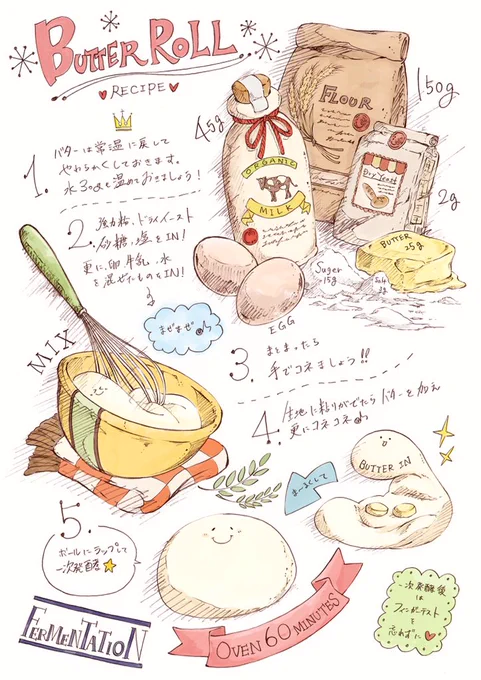 BUTTER ROLL
♥RECIPE♥
FLOUR
150g
45g
ORGANIC
MILK
Dry Yeast
2g
BUTTER
25g
Suger
15g
Salt
2g
EGG
1.
バターは常温に戻して
やわらかくしておきます。
水30gを温めておきましょう!
2.
強力粉、ドライイースト
砂糖、塩をIN!
更に、卵、牛乳、水
を混ぜたものをIN!
まぜまぜ
MIX
3.
まとまったら
手でコネましょう!!
4.
生地に粘りがでたらバターを加え
更にコネコネ
BUTTER IN
まーるくして
5.
ボールにラップして
一次発酵
FERMENTATION
OVEN 60 MINUTES
一次発酵後
は
フィンガーテスト
を
忘れずに♥